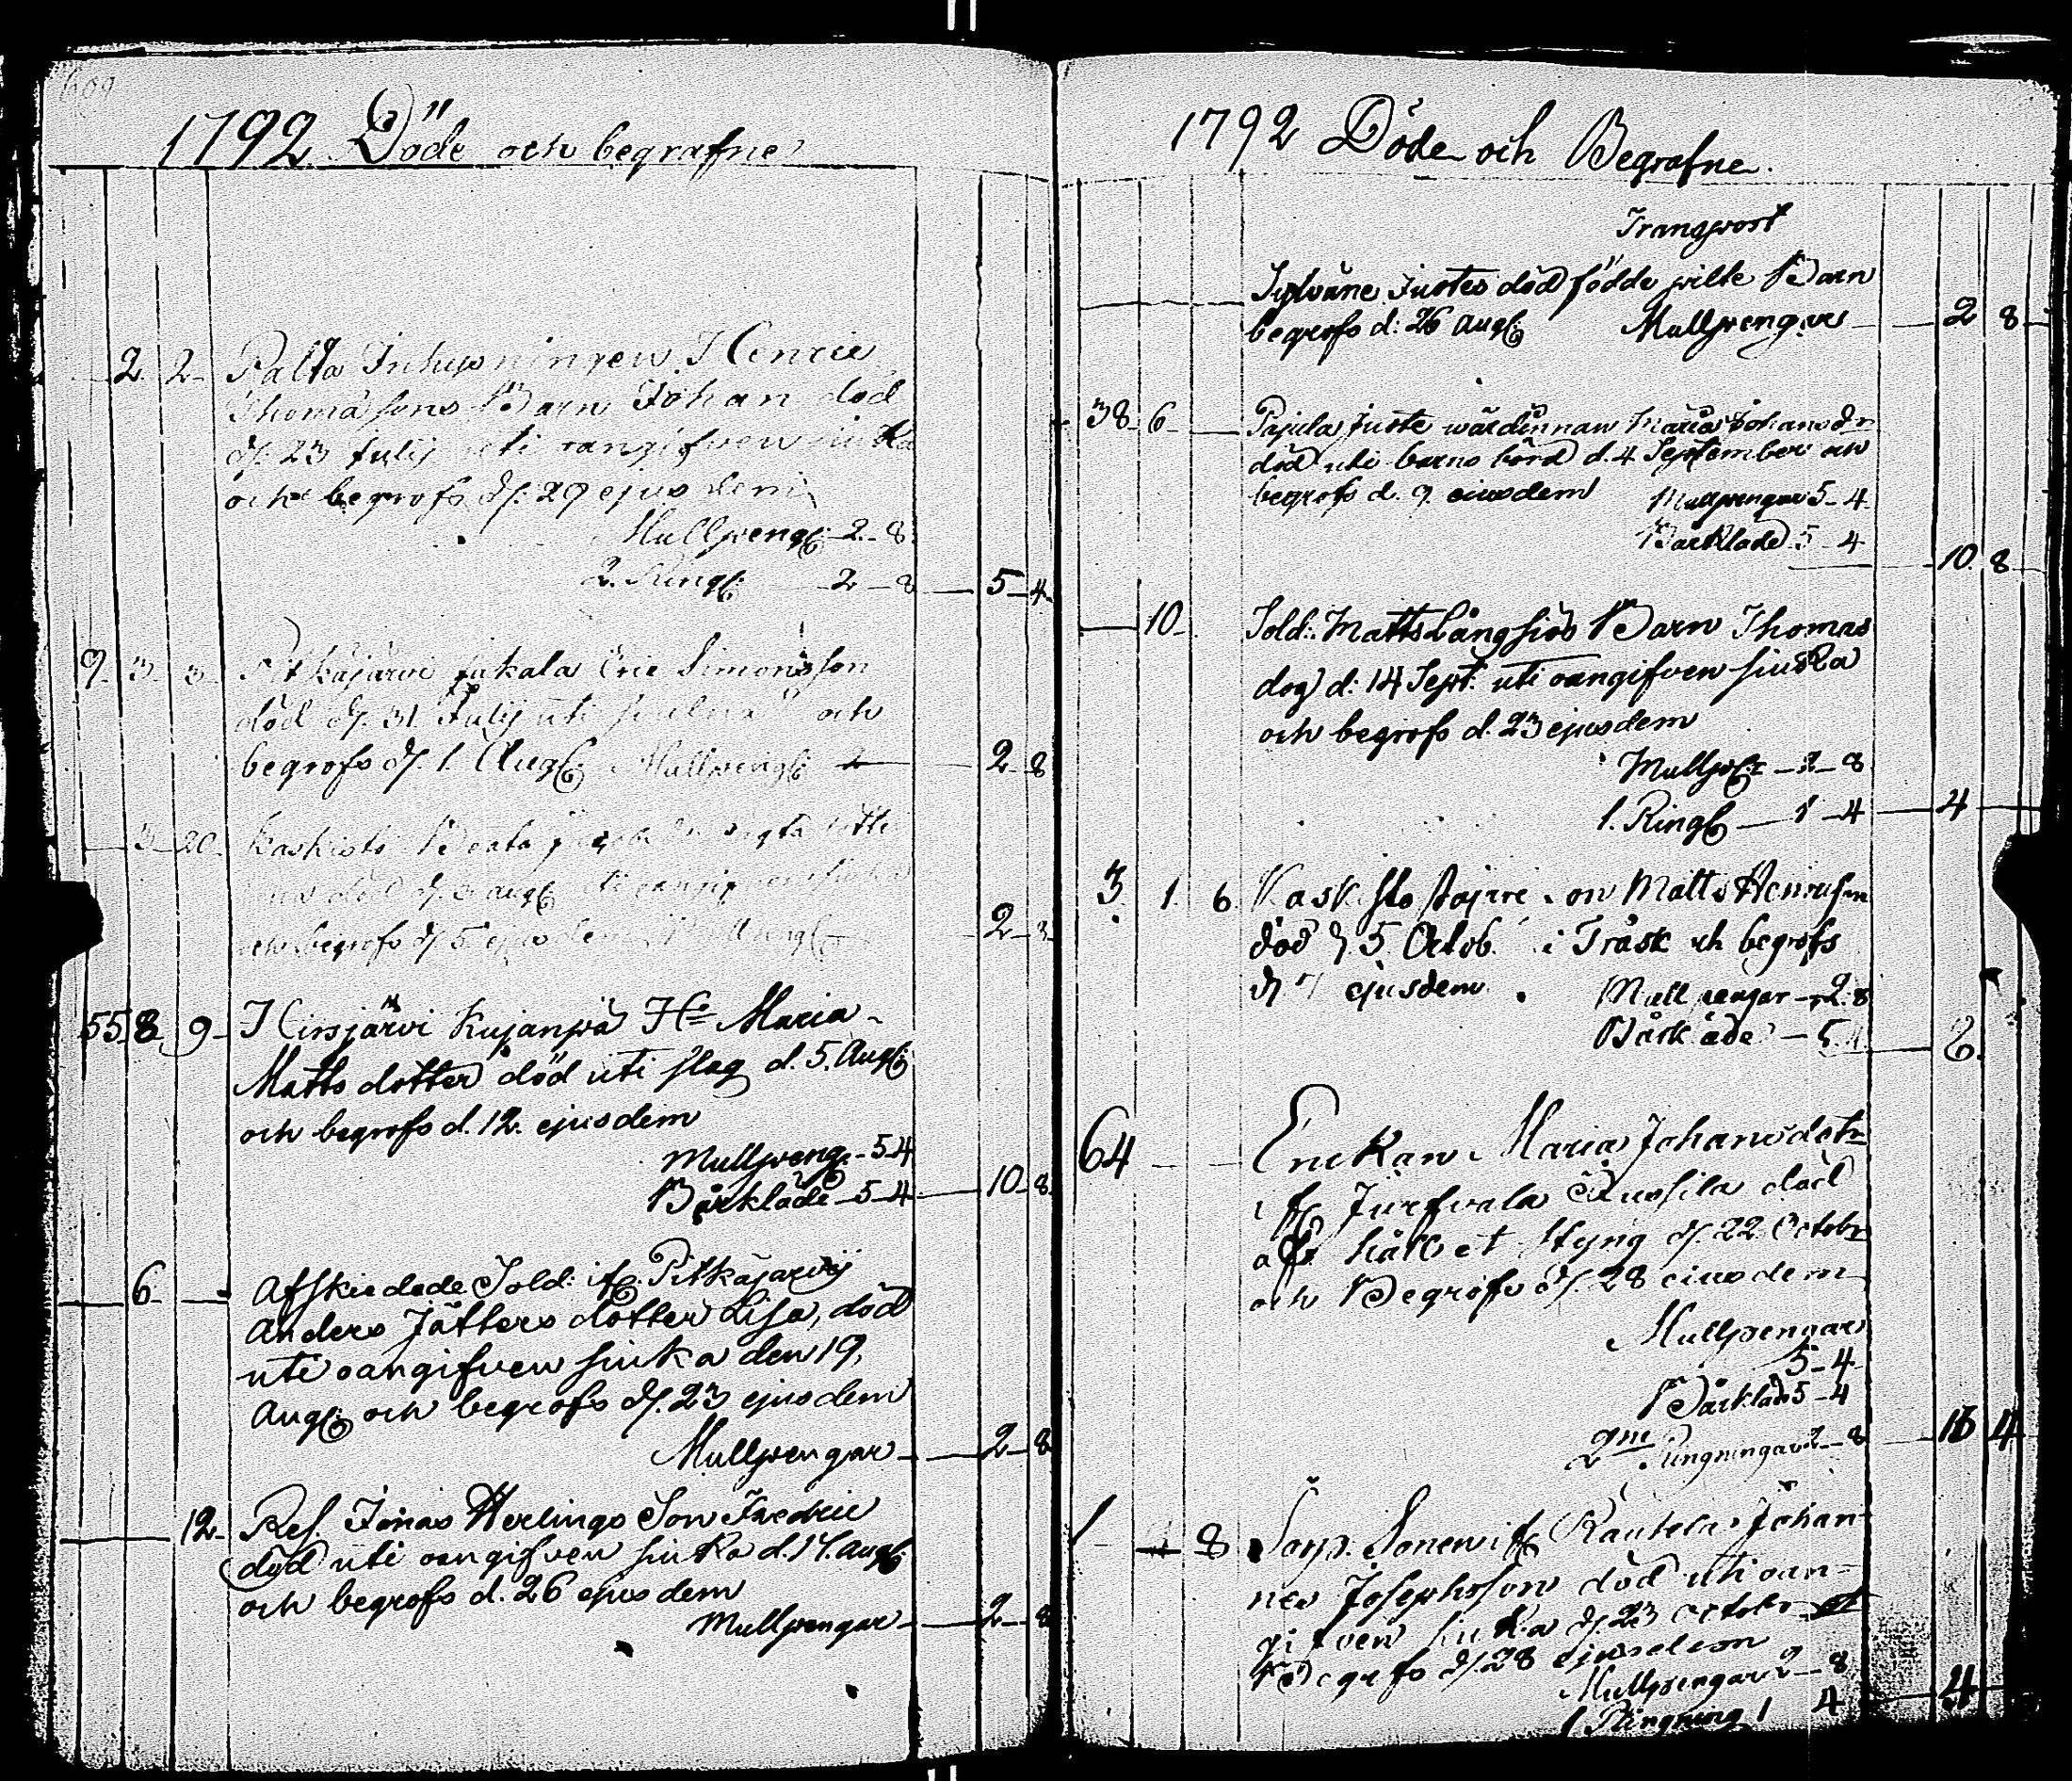 609
1792 Döde och begrafne
2 2 Palta Inhysningen Henric
Thomassons Barn Johan död
d. 23 Julij uti oangifven siuka
och begrofs d. 29 ejusdem
Mullpeng: 2-8
2. Ring: 2-8 5-4
9 3 3 Pitkäjärvi Jakala Eric Simonsson
död d. 31 Julij uti och
begrofs d. 1. Aug: Mullpeng: 2-8
3 20 Kaskisto Beata
död d. 3 aug: uti oangifven siuka
och begrofs d. 5 ejusdem 2
55 8 9 Hirsjärvi Kujanpä H Maria
Matts dotter död uti slag d. 5. Aug:
och begrofs d. 12. ejusdem
Mullpeng: 5-4
Bårkläde 5-4 10-8
6 Afskiedade Sold: if: Pitkäjärvij
Anders Jätters dotter Lisa, död
uti oangifven siuka den 19,
Aug: och begrofs d. 23 ejusdem
Mullpengar 2-8
12 Ref. Jonas Herlings Son Fredric
död uti oangifven siuka d. 17. aug:
och begrofs d. 26 ejusdem
Mullpengar 2-8
1792 Döde och Begrafne.
Transport
Sylväne Justes död födde pilte Barn
begrofs d: 26 aug: Mullpengar 2 8
38 6 Pajula Juste wärdinnan Maria Johansdr
död uti barns börd d. 4 September och
begrofs d. 9 eiusdem Mullpengar 5-4
Bårkläde 5-4
10 8
10 Sold: Matts Långsiös Barn Thomas
dog d: 14 Sept: uti oangifven siuka
och begrofs d. 23 ejusdem
Mullp: 2-8
1. Ring: 1-4 4
3 1 6 Kaskisto Matts Henrichson
död d 5. Octob. i Träsk och begrofs
d 7 ejusdem. Mullpengar 2.8
Bårkläde 5.4
8
64 Enckan Maria Johansdotr
if: Jurfvala död
af håll et styng d. 22 Octobr
och Begrofs d. 28 eiusdem
Mullpengar
5-4
Bårkläde 5-4
2ne Ringningar 2-8 4
1 8 Sonen if: Rautela Johan-
nes Josephsson död uti oan-
gifven siuka d. 23 octobr
Begrofs d. 28 ejusdem
Mullpengar 2-8
1 Ringning 1 4 4